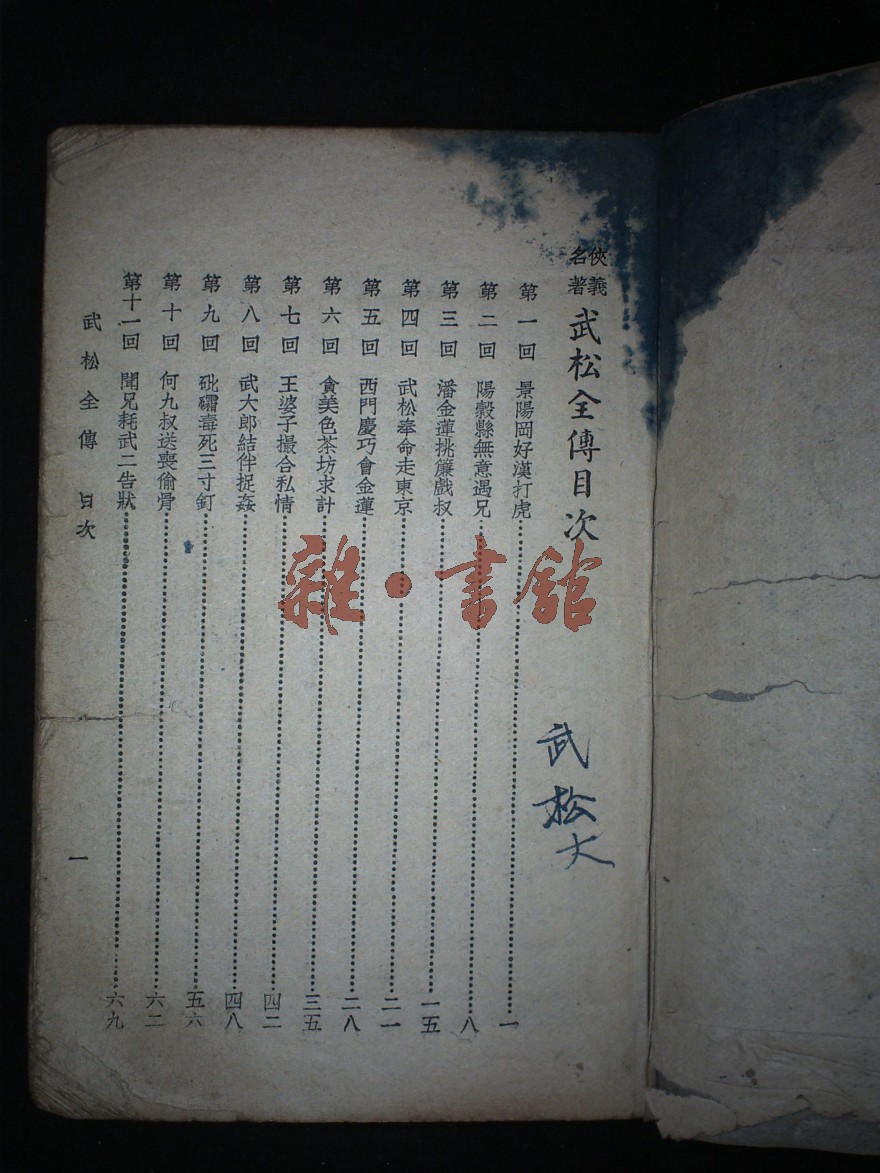 俠義名著 武松全傳目次
第一回 景陽岡好漢打虎 一
第二回 陽穀縣無意遇兄 八
第三回 潘金蓮挑簾戲叔 一五
第四回 武松奉命走東京 二一
第五回 西門慶巧會金蓮 二八
第六回 貪美色茶坊求計 三五
第七回 王婆子撮合私情 四二
第八回 武大郎結伴捉姦 四八
第九回 砒礵毒死三寸釘 五六
第十回 何九叔送喪偷骨 六二
第十一回 聞兄耗武二告狀 六九
武松全傳 目次
一
武松大
雜·書館